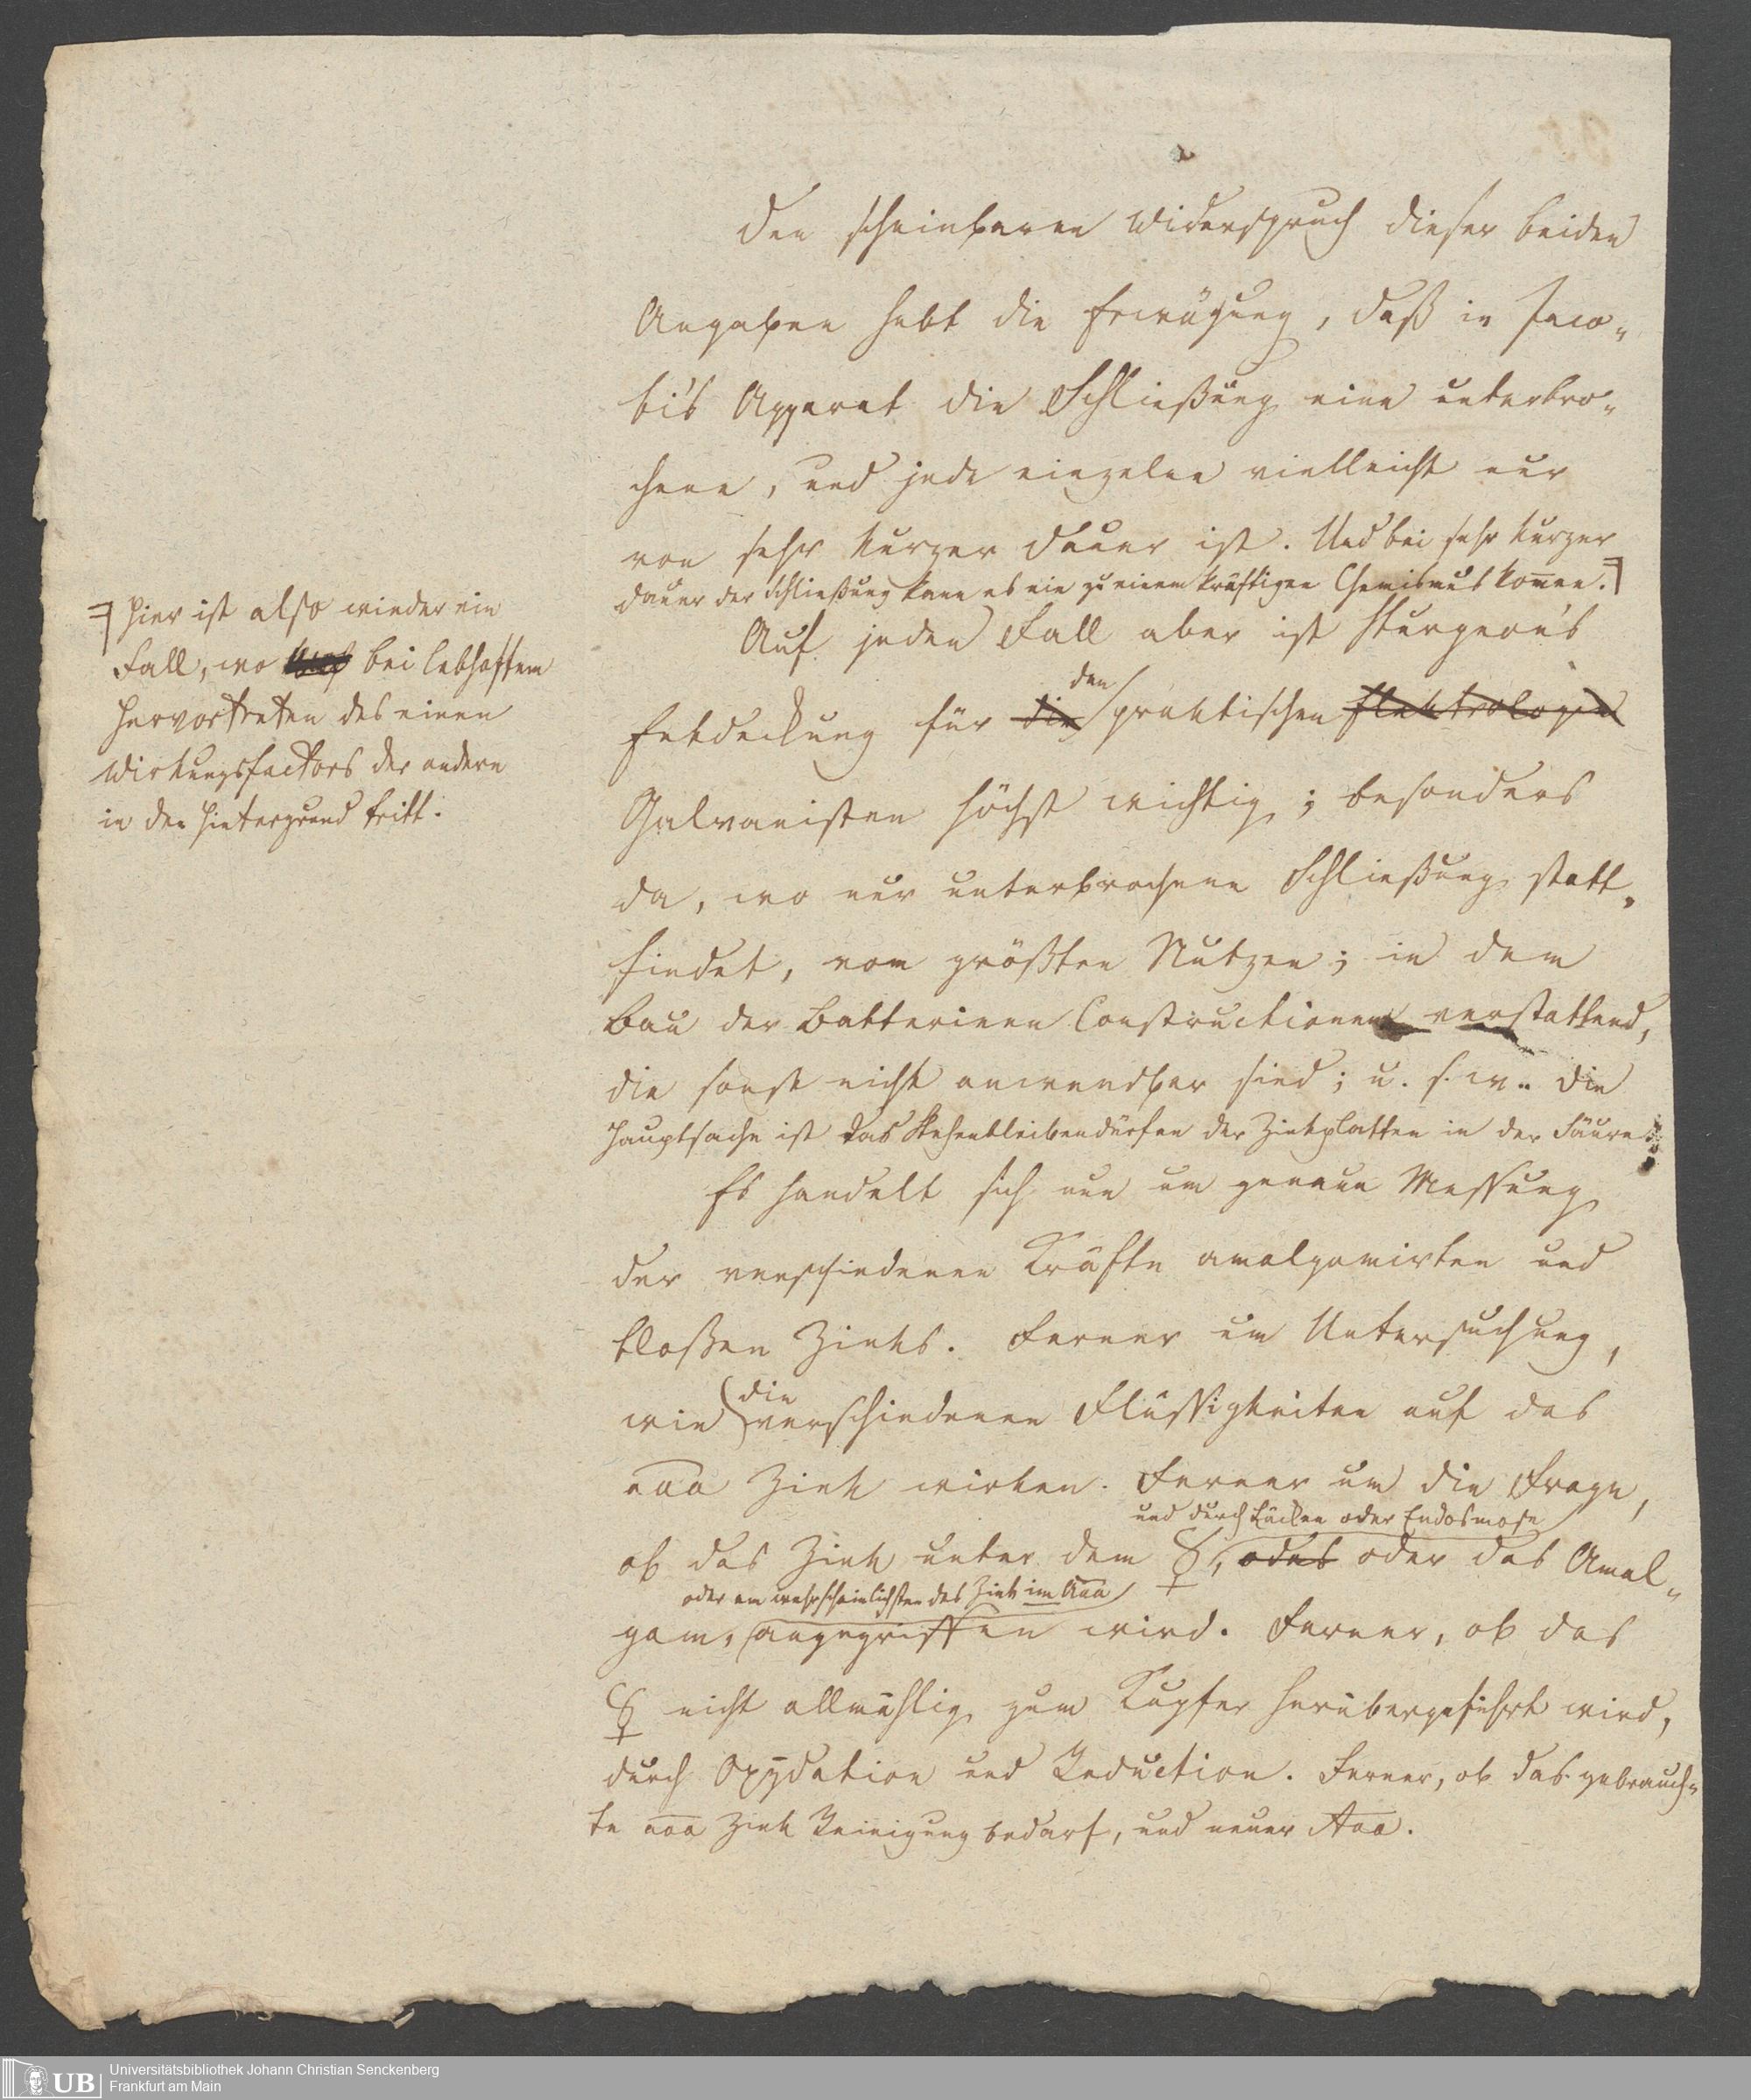 Den scheinbaren Widerspruch dieser beiden
Angaben hebt die Erwägung, daß in Jaco-
bi's Apparat die Schließung eine unterbro-
chene, und jede einzelne vielleicht nur
von sehr kurzer Dauer ist. Und bei sehr kurzer
Dauer der Schließung kann es nie zu einem kräftigen Chemismus kom̅en.
Auf jeden Fall aber ist Sturgeon's
den
Entdeckung für die praktischen Elektrologie
Galvanisten höchst wichtig; besonders
da, wo nur unterbrochene Schließung statt-
findet, vom größten Nutzen; in dem
Bau der Batterieen Constructionen verstattend,
die sonst nicht anwendbar sind; u. s. w.. Die
Hauptsache ist das Stehenbleibendürfen der Zinkplatten in der Säure.
Es handelt sich nun um genaue Messung
der verschiedenen Kräfte amalgamirten und
bloßen Zinks. Ferner um Untersuchung,
die
wie verschiedenen Flüssigkeiten auf das
aaa Zink wirken. Ferner um die Frage,
und durch Lücken oder Endosmose
ob das Zink unter dem ☿, odas oder das Amal-
oder am wahrscheinlichsten das Zink im Aaa
gam, angegriffen wird. Ferner, ob das
☿ nicht allmählig zum Kupfer herübergeführt wird,
durch Oxydation und Reduction. Ferner, ob das gebrauch-
te aaa Zink Reinigung bedarf, und neuer Aaa.
Hier ist also wieder ein
Fall, wo bei lebhaftem
Hervortreten des einen
Wirkungsfactors der andere
in den Hintergrund tritt.
Universitätsbibliothek Johann Christian Senckenberg
Frankfurt am Main
UB